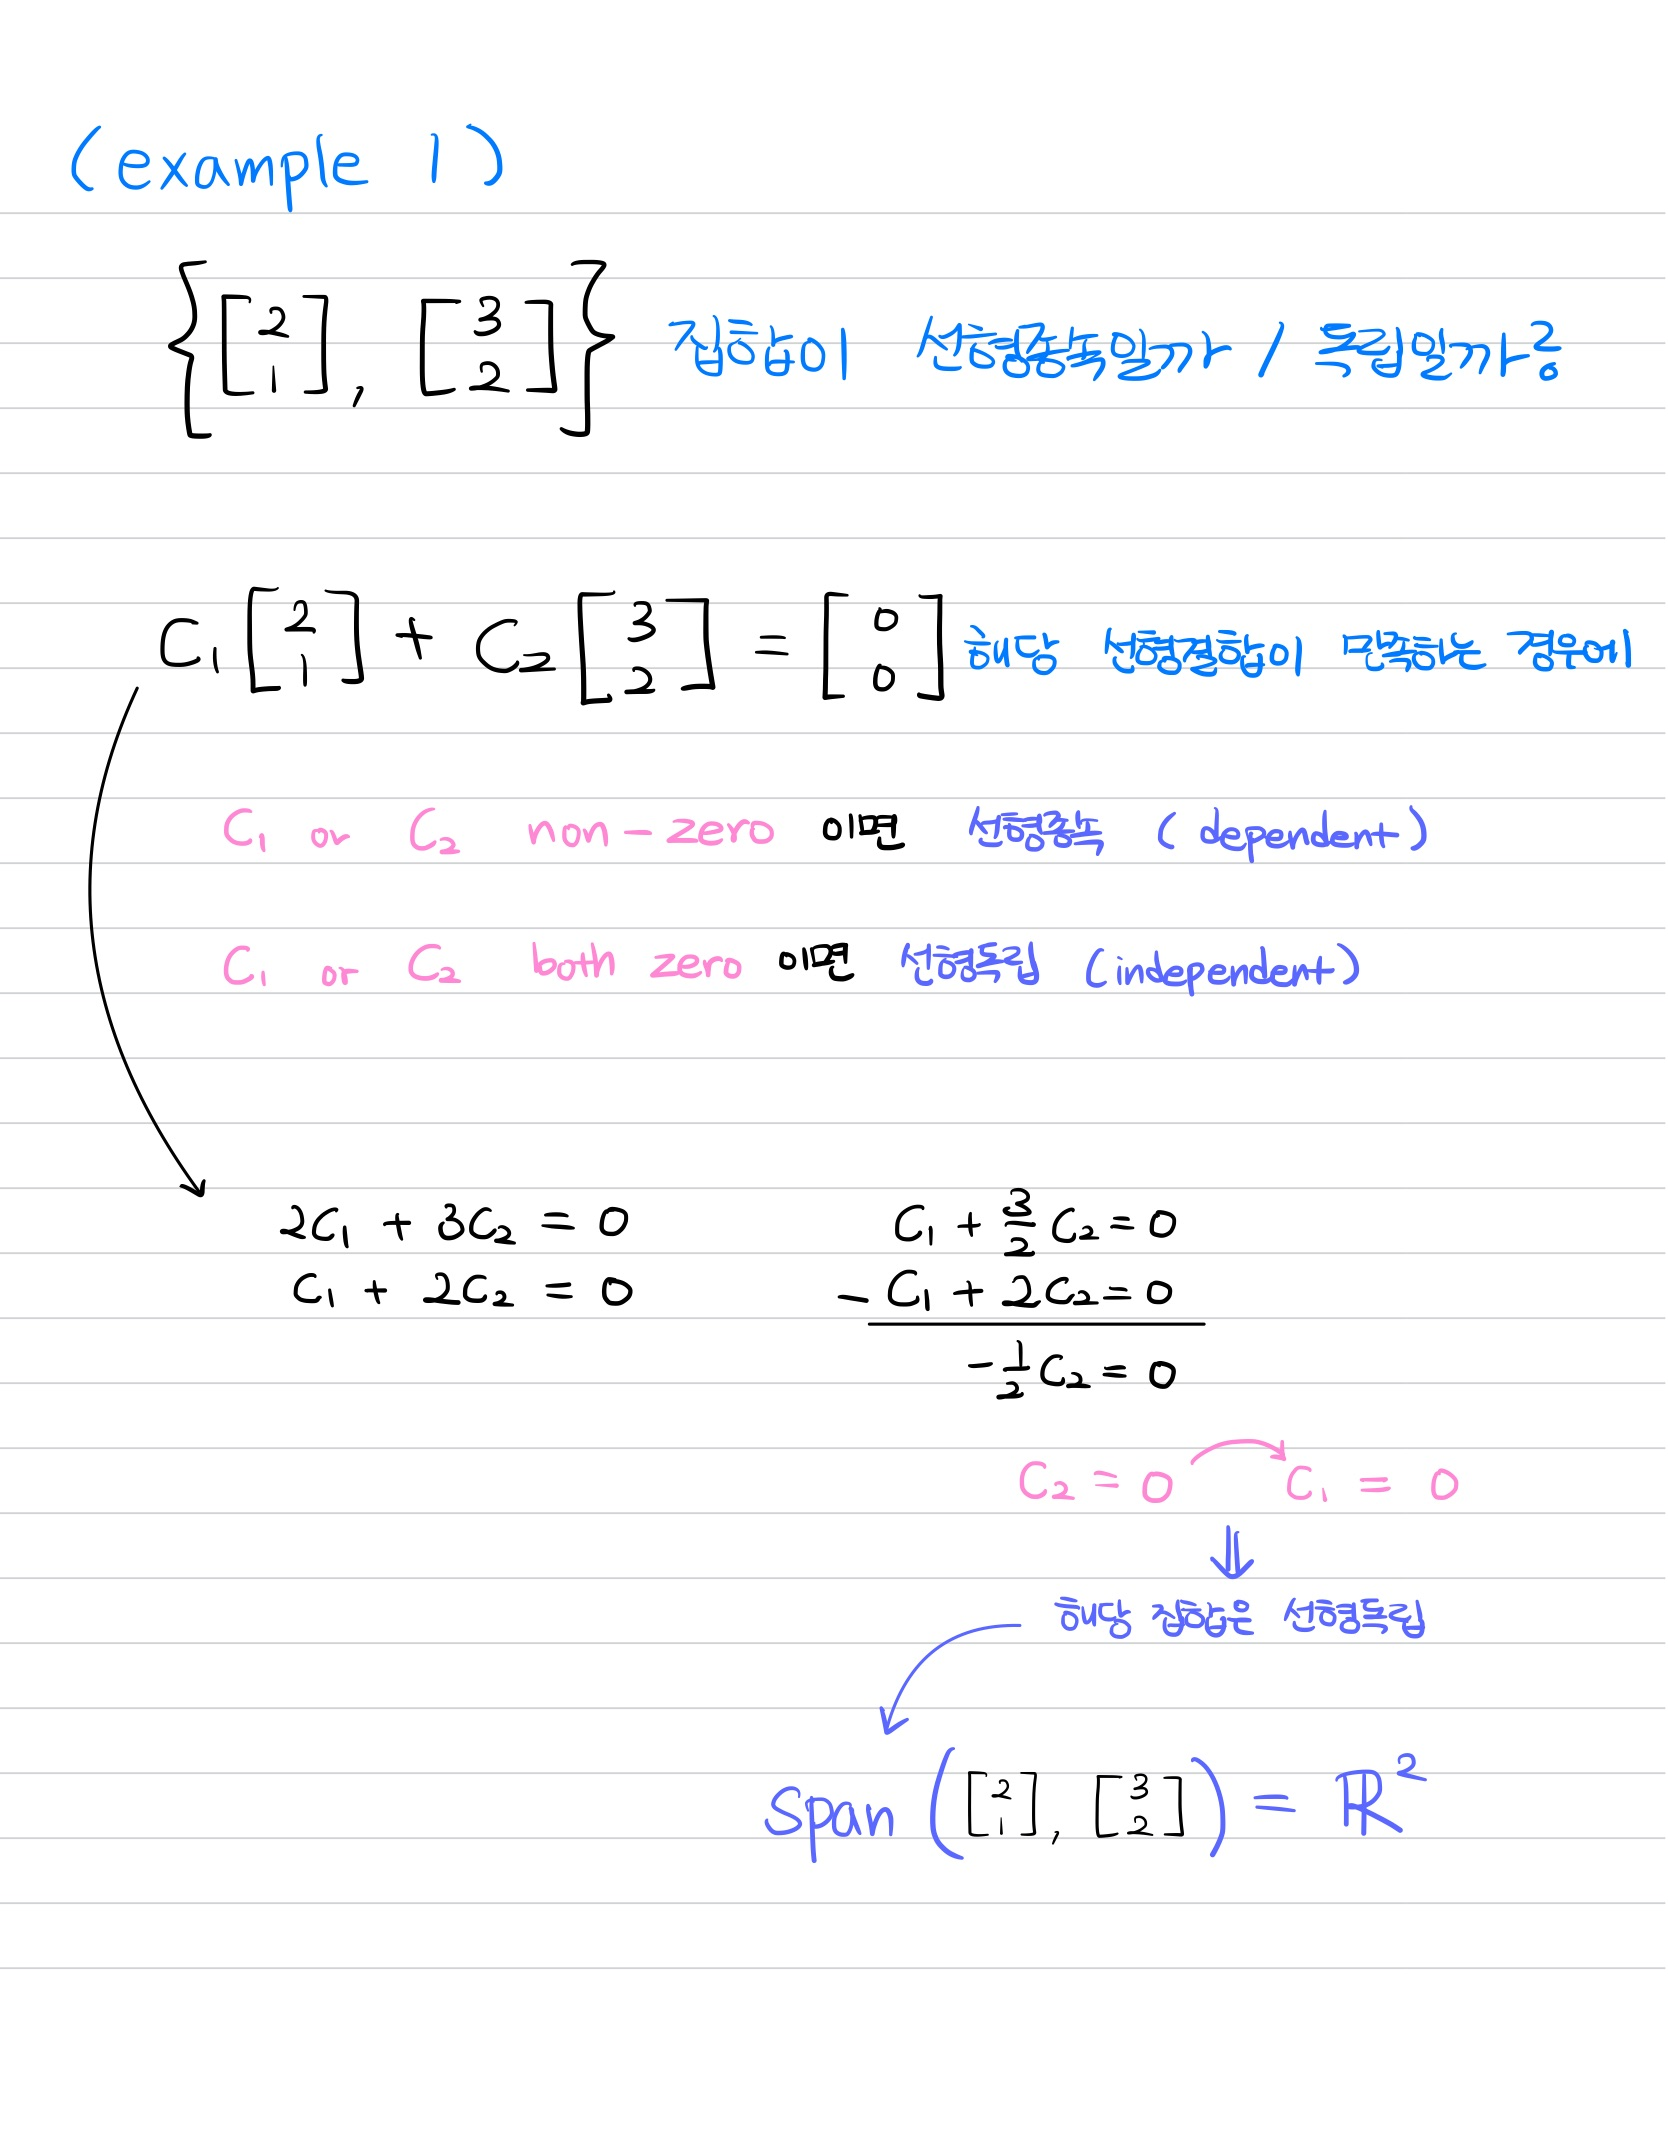 (example 1)
{[2 1], [3 2]} 집합이 선형종속일까 / 독립일까?
C₁[2 1] + C₂[3 2] = [0 0] 해당 선형결합이 만족하는 경우에
C₁ or C₂ non-zero 이면 선형종속 (dependent)
C₁ or C₂ both zero 이면 선형독립 (independent)
2C₁ + 3C₂ = 0
C₁ + 2C₂ = 0
C₁ + 3/2 C₂ = 0
- C₁ + 2C₂ = 0
-1/2 C₂ = 0
C₂ = 0 C₁ = 0
⇓
해당 집합은 선형독립
Span ([2 1], [3 2]) = ℝ²